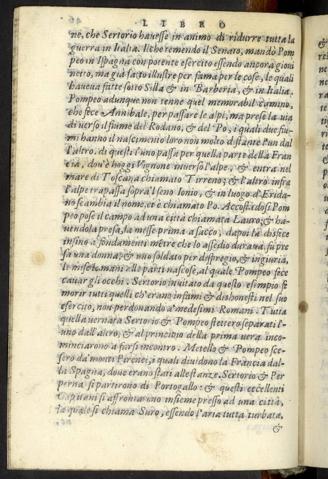 LIBRO
ne, che Sertorio hauesse in animo di ridurre tutta la
guerra in Italia. Ilche temendo il Senato, mandò Pom
peo in Ispagna con potente esercito essendo ancora gioui
netto, ma già fatto illustre per fama per le cose, le quali
haueua fatte sotto Silla & in Barberia, & in Italia.
Pompeo adunque non tenne quel memorabil camino,
che fece Annibale, per passare le alpi, ma prese la via
di verso il fiume del Rodano, & del Po, i quali due fiu-
mi hanno il nascimento loro non molto distante l'un dal
l'altro. di questi l'uno passa per quella parte della Fran
cia, dou'è hoggi Vignone inuerso l'alpe, & entra nel
mare di Toscana chiamato Tirreno: & l'altro infra
l'alpe trapassa sopra'l seno Ionio, & in luogo d'Erida-
no scambia il nome, et è chiamato Po. Accostādosi Pom
peo pose il campo ad una città chiamata Lauro: & ha-
uendola presa, la messe prima a sacco, dapoi la disfece
insino a fondamenti mētre che lo assedio duraua. fu pre
sa una donna; & uno soldato per dispregio, & ingiuria,
le misse le mani alle parti nascose, al quale Pompeo fece
cauar gli occhi. Sertorio inuitato da questo esempio fe
morir tutti quelli, ch'erano infami & dishonesti nel suo
esercito, non perdonando a' medesimi Romani. Tutta
quella uernata Sertorio & Pompeo stettero separati l'-
uno dall'altro; & al principio della prima uera inco-
minciarono a farsi incontro. Metello & Pompeo sce-
sero da' monti Pirenei, i quali diuidono la Francia dal-
la Spagna, doue erano stati alle stanze. Sertorio & Per
perna si partirono di Portogallo: & questi eccellenti
Capitani si affrontarono insieme presso ad una città,
la quale si chiama Suro, essendo l'aria tutta turbata,
&